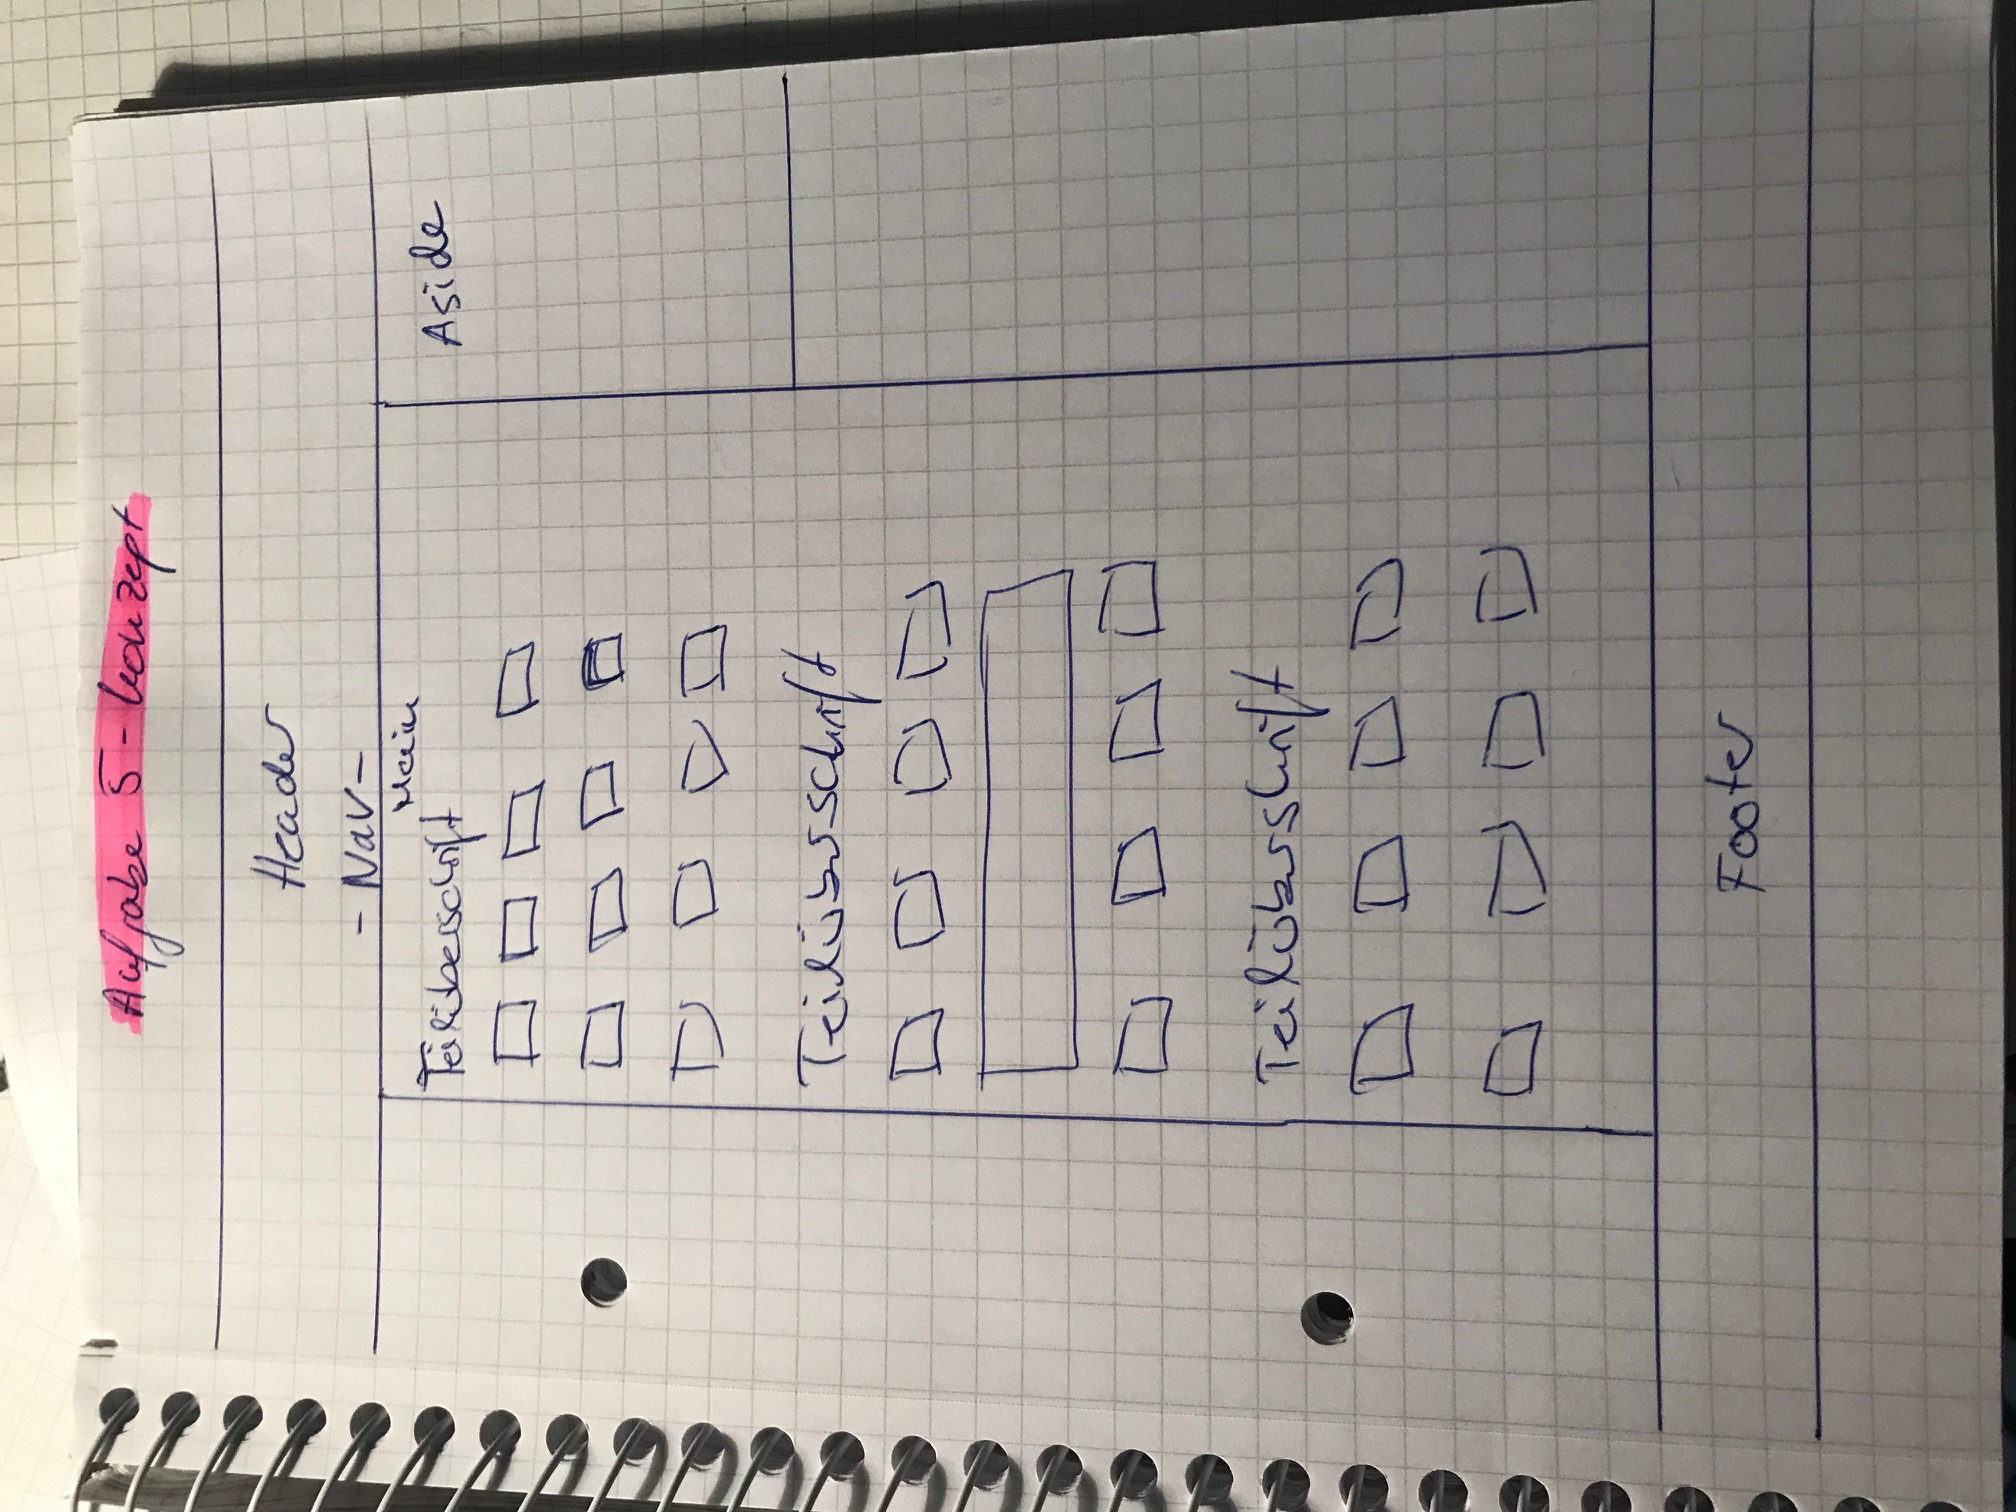 Aufgabe 5 - Konzept
Header
- Nav -
Main
Teilüberschrift
Aside
Teilüberschrift
Teilüberschrift
Footer